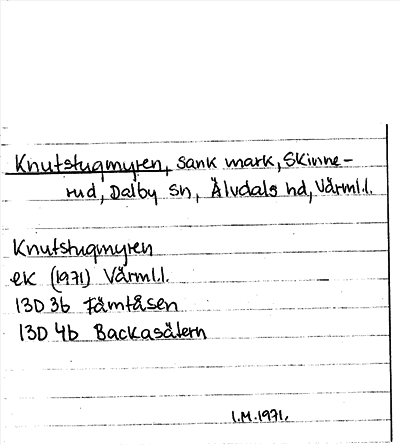 Knutstugmyren, sank mark, Skinne-
rud, Dalby sn, Älvdals hd, Värml.l.
Knutstugmyren
ek (1971) Värml.l.
13D 3b Jämtåsen
13D 4b Backasätern
I.M.1971.